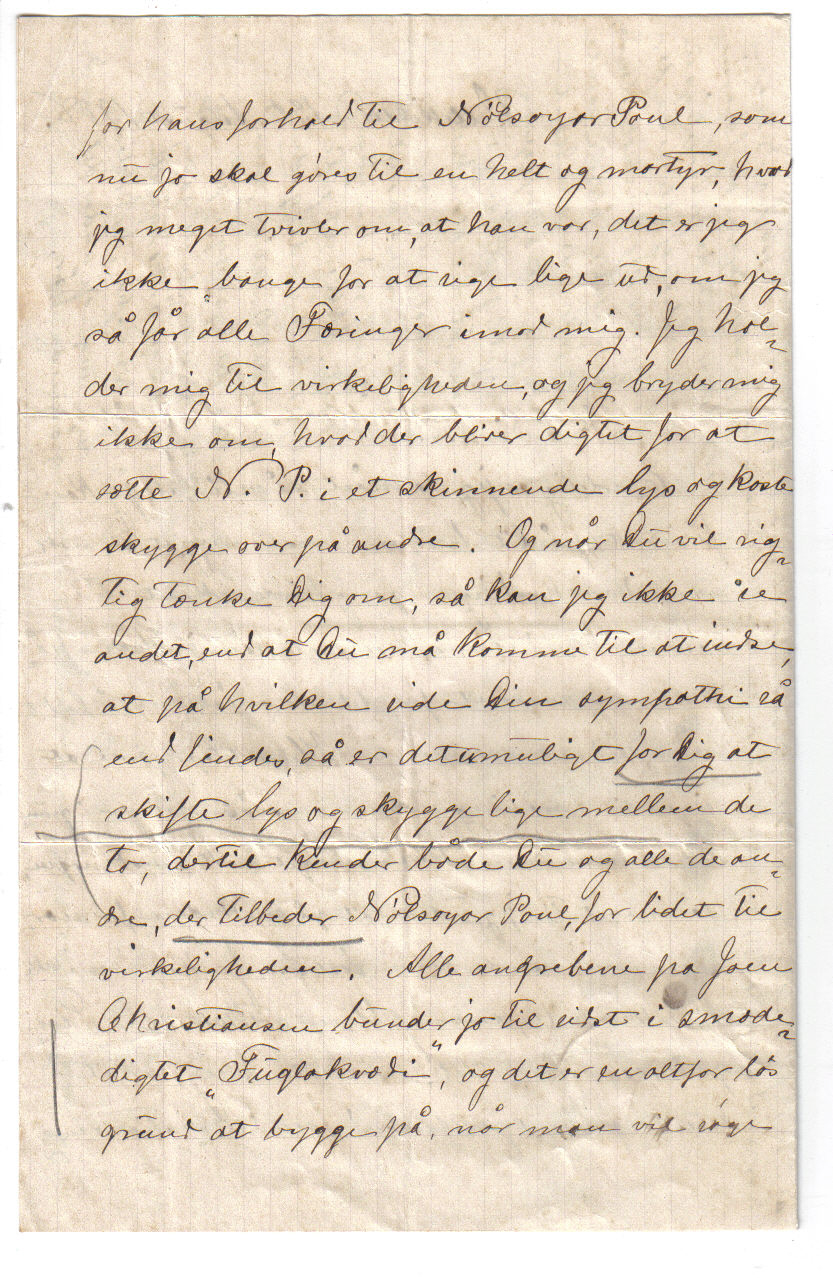 for hans forhold til Nólsoyar Poul, som
nu jo skal göres til en helt og martyr, hvad
jeg meget tvivler om, at han var, det er jeg
ikke bange for at sige lige ud, om jeg
så får alle Færinger imod mig. Jeg hol-
der mig til virkeligheden, og jeg bryder mig
ikke om, hvad der bliver digtet for at
sætte N. P. i et skinnende lys og kaste
skygge over på andre. Og når Du vil rig-
tig tænke Dig om, så kan jeg ikke se
andet, end at Du må komme til at indse,
at på hvilken side Din sympathi så
end findes, så er det umuligt for Dig at
skifte lys og skygge lige mellem de
to, dertil kender både Du og alle de an-
dre, der tilbeder Nólsoyar Poul, for lidet til
virkeligheden. Alle angrebene på Joen
Christiansen bunder jo til sidst i smæde-
digtet "Fuglakvæði", og det er en altfor lös
grund at bygge på, når man vil söge